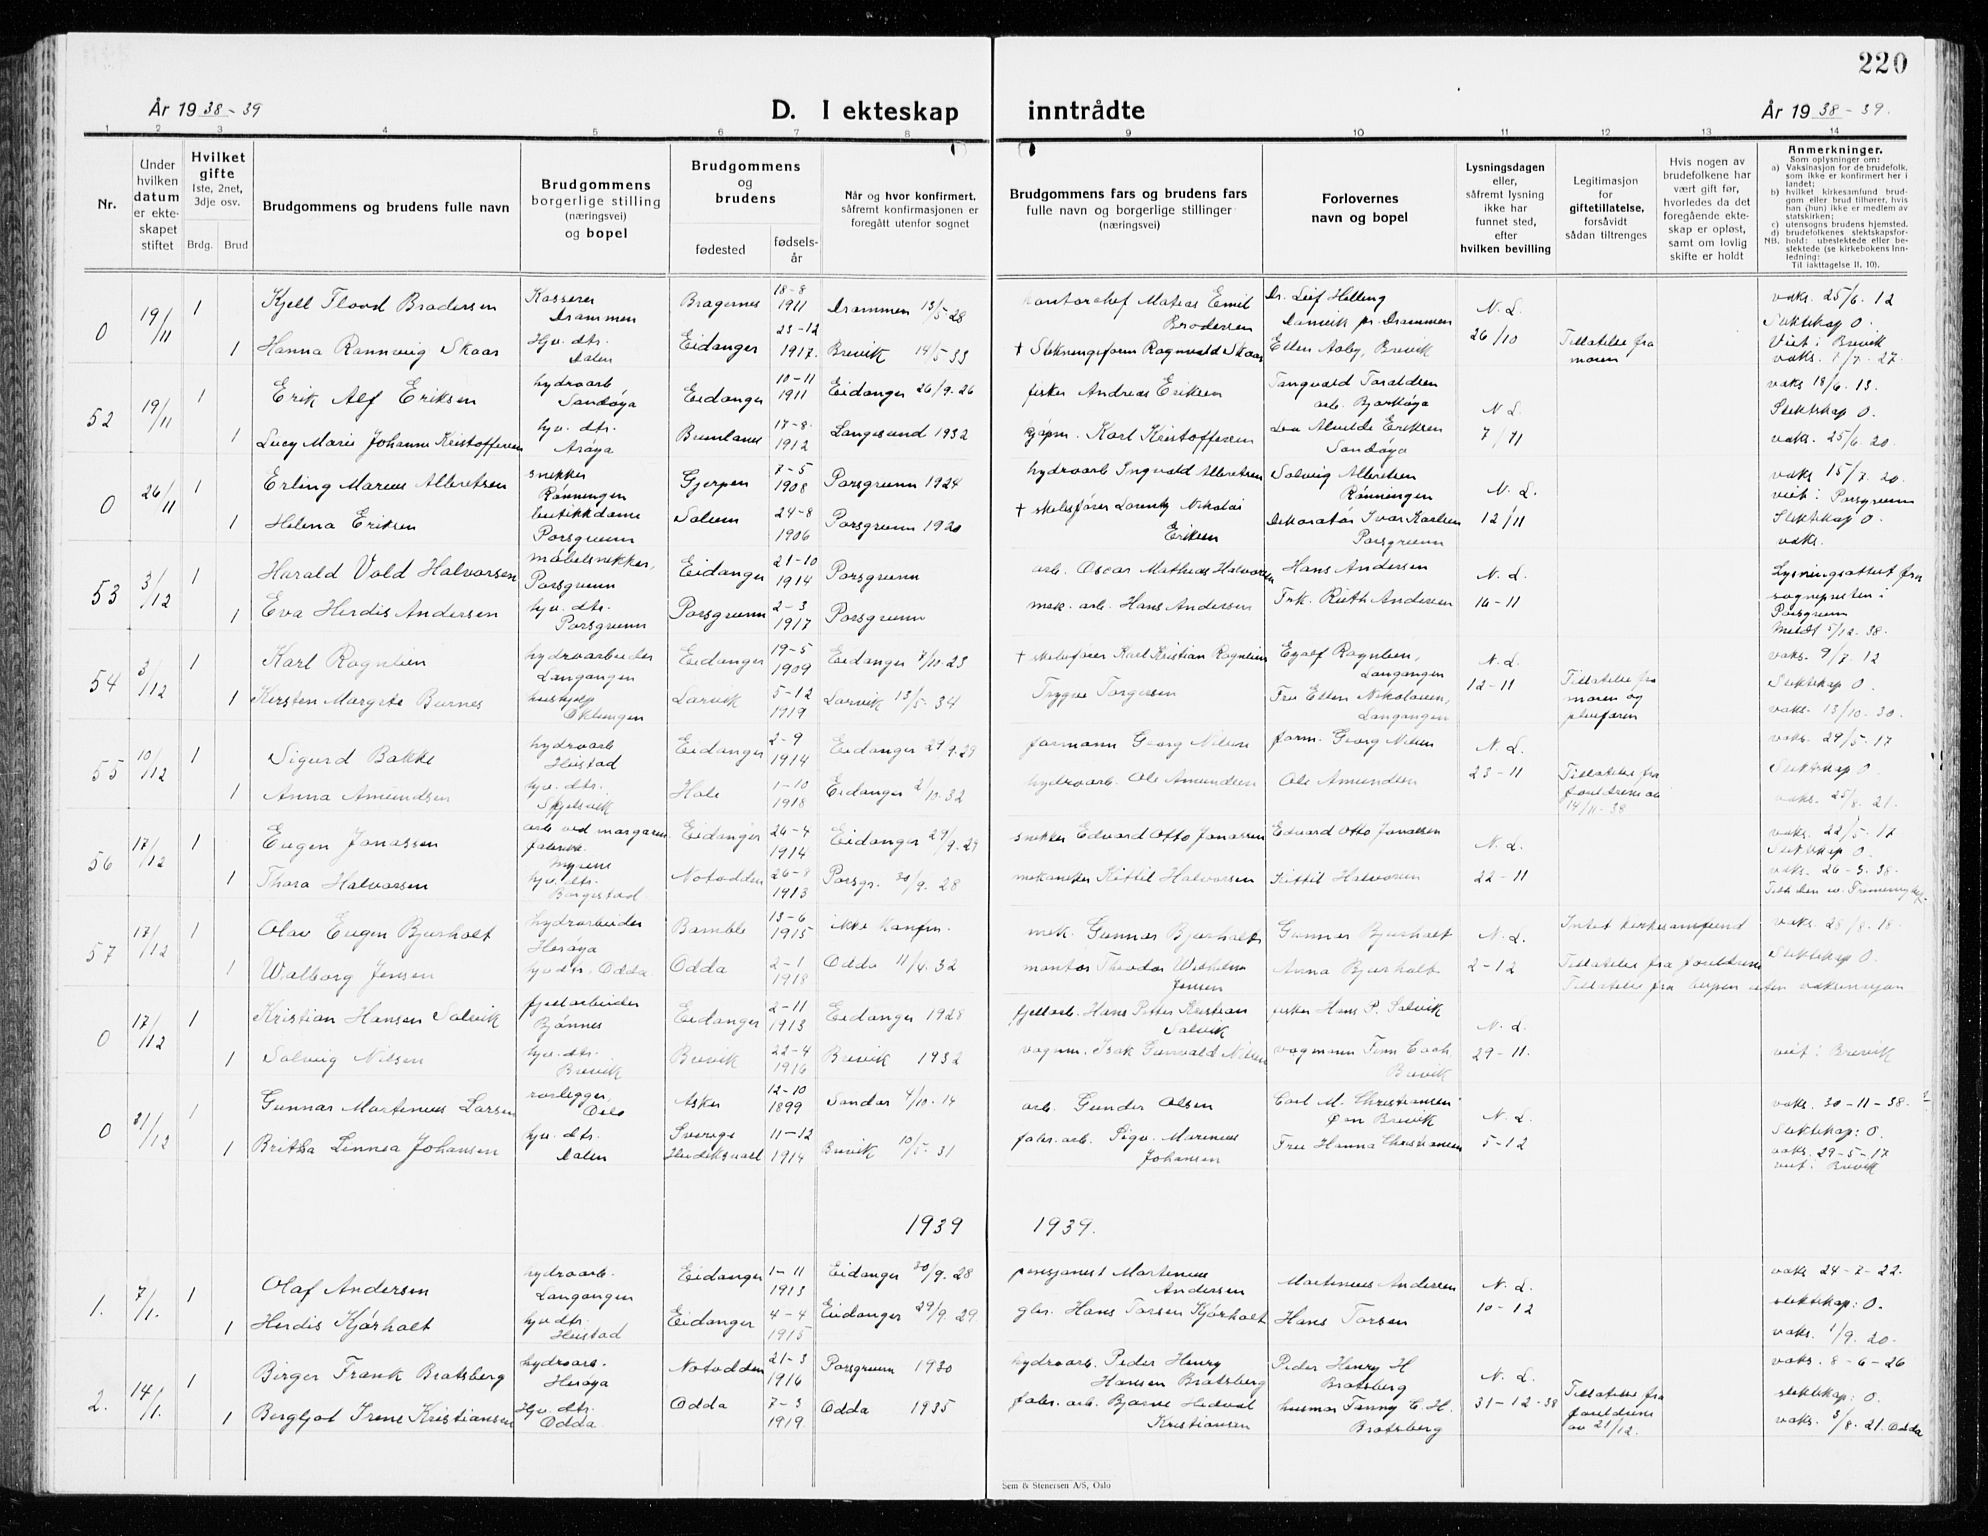 220
År 1938-39 D. I ekteskap inntrådte År 1938-39.
1 2 3 4 5 6 7 8 9 10 11 12 13 14
Nr.
Under hvilken datum er ekteskapet stiftet
Hvilket gifte
1ste, 2net, 3dje osv.
Brdg. Brud
Brudgommens og brudens fulle navn
Brudgommens borgerlige stilling (næringsvei) og bopel
Brudgommens og brudens
fødested
fødselsår
Når og hvor konfirmert, såfremt konfirmasjonen er foregått utenfor sognet
Brudgommens fars og brudens fars fulle navn og borgerlige stillinger (næringsvei)
Forlovernes navn og bopel
Lysningsdagen eller, såfremt lysning ikke har funnet sted, efter hvilken bevilling
Legitimasjon for giftetillatelse, forsåvidt sådan tiltrenges
Hvis nogen av brudefolkene har vært gift før, hvorledes da det foregående ekteskap er opløst, samt om lovlig skifte er holdt
Anmerkninger.
Som oplysninger om:
a) Vaksinasjon for de brudefolk, som ikke er konfirmert her i landet;
b) hvilket kirkesamfund brudgom eller brud tilhører, hvis han (hun) ikke er medlem av statskirken;
c) utensogns brudens hjemsted.
d) brudefolkenes slektskapsforhold: ubeslektede eller beslektede (se kirkebokens Innledning:
NB. Til iakttagelse II, 10).
0 19/11 1 Kjell Flood Brodersen Kasserer Drammen Bragernes 18-8 1911 Drammen 13/5-28 kontorchef Matias Emil Brodersen Dr. Leif Helling N. L. vaks. 25/6. 12
1 Hanna Rannveig Skaar Hjv. dtr. Dalen Eidanger 23-12 1917. Brevik 14/5-33 Ragnvald Skaar Ellen Aaby, Brevik 26/10 Tillatelse fra moren Slektskap 0. Viet i Brevik vaks. 1/7. 27.
52 19/11 1 Erik Alf Eriksen hydroarb Sandøya Eidanger 10-11 1911 Eidanger 26/9. 26 fisker Andreas Eriksen Tangvald Taraldsen arb. Bjørkøya N. L. vaks 18/6. 13.
1 Lucy Marie Johanne Kristoffersen hjv. dtr. Arøya Brunlanes 17-8 1912 Langesund 1932 Karl Kristoffersen Alvilde Eriksen Sandøya 7/11 Slektskap 0. vaks. 25/6. 20.
0 26/11 1 Erling Marius Albretsen snekker Rønningen Gjerpen 7-5 1908 Porsgrunn 1924 hydroarb Ingvald Albretsen Solveig Albretsen Rønningen N. L. vaks 15/7. 20.
1 Helena Eriksen butikkdame Porsgrunn Solum 24-8 1906 Porsgrunn 1920 + Lorentz Nikolai Eriksen Dekoratør Ivar Karlsen Porsgrunn 12/11 viet i Porsgrunn Slektskap 0. vaks.
53 3/12 1 Harald Vold Halvorsen møbelsnekker, Porsgrunn Eidanger 21-10 1914 Porsgrunn arb. Oscar Mathias Halvorsen Hans Andersen N. L. Lysningsattest fra sognepresten i Porsgrunn
1 Eva Herdis Andersen hjv. dtr. Porsgrunn Porsgrunn 2-3 1917 Porsgrunn mek. arb. Hans Andersen Frk. Ruth Andersen 16-11 Meldt 5/12-38.
54 3/12 1 Karl Rognlien hydroarbeider Langangen Eidanger 19-5 1909 Eidanger 7/10-23 + Karl Kristian Rognlien Eyolf Rognlien, Langangen N. L. vaks. 9/7. 12
1 Kirsten Margrete Burnes hushjelp Oklungen Larvik 5-12 1919 Larvik 13/5-34 Trygve Torgersen Fru Ellen Nikolaisen, Langangen 12-11 Tillatelse fra moren og pleiefaren Slektskap 0. vaks. 13/10. 30.
55 10/12 1 Sigurd Bakke hydroarb Heistad Eidanger 2-9 1914 Eidanger 29/9. 29 formann Georg Nilsen form. Georg Nilsen N. L. vaks. 29/5-17
1 Anna Amundsen hjv. dtr. Skjelsvik Hole 1-10 1918 Eidanger 2/10. 32 hydroarb. Ole Amundsen Ole Amundsen 23-11 Tillatelse fra foreldrene av 14/11-38 Slektskap 0 vaks. 25/8. 21.
56 17/12 1 Eugen Jonassen arb ved margarinfabrikk Myrene Eidanger 26-4 1914 Eidanger 29/9. 29 snekker Edvard Otto Jonassen Edvard Otto Jonassen N. L. vaks. 22/5-17 Slektskap 0.
1 Thora Halvorsen hjv. dtr. Borgestad Notodden 26-8 1913 Porsgr. 30/9. 28 Kittil Halvorsen Kittil Halvorsen 22-11 vaks. 26-3. 38.
57 17/12 1 Olav Eugen Bjørholt hydroarbeider Herøya Bamble 13-6 1915 ikke konfm. mek. Gunnar Bjørholt Gunnar Bjørholt N. L. Intet kirkesamfund vaks. 28/8. 18.
1 Walborg Jensen hjv dtr, Odda Odda 2-1 1918 Odda 11/4. 32 montør Theodor Wilhelm Jensen Anna Bjørholt 2-12 Tillatelse fra foreldrene Slektskap 0.
0 17/12 1 Kristian Hansen Salvik fjellarbeider Bjønnes Eidanger 2-11 1913 Eidanger 1928 fjellarb. Hans Petter Kristian Salvik fisker Hans P. Salvik N. L.
1 Solveig Nilsen hjv. dtr. Brevik Brevik 22-4 1916 Brevik 1932 vognm. Isak Gunvald Nilsen vognmann Finn Brevik 29-11. viet i Brevik
0 31/12 1 Gunnar Martinius Larsen rørlegger, Oslo Asker 12-10 1899 Sandar 4/10-14 arb. Gunder Olsen Carl M. Christiansen Brevik N. L. vaks. 30-11-38.
1 Britha Linnea Johansen hjv. dtr. Dalen Sverige 11-12 1914 Brevik 10/5-31 fabr. arb. Sigv. Marinius Johansen Fru Hanna Christiansen 5-12 Slektskap: 0. vaks. 29-5-17 viet i Brevik
1939 1939.
1. 7/1. 1 Olaf Andersen hydroarb. Langangen Eidanger 1-11 1913 Eidanger 30/9. 28 pensjonist Martinius Andersen Martinius Andersen N. L. vaks 24-7-22.
1 Herdis Kjørholt hjv dtr. Heistad Eidanger 4-4 1915 Eidanger 29/9. 29. gbr. Hans Torsen Kjørholt Hans Torsen 10-12 slektskap: 0. vaks. 1/9. 20.
2. 14/1. 1 Birger Frank Bratsberg hydroarb. Herøya Notodden 21-3 1916 Porsgrunn 1930 hydroarb. Peder Henry Hansen Bratsberg Peder Henry H Bratsberg N. L. vaks. 8-6-26
1 Bergljot Irene Kristiansen Hjv. dtr. Odda. Odda 7-3 1919. Odda 1935 fabr. arb. Bjarne Hedval Kristiansen husmor Fanny C. H. Bratsberg 31-12-38 Tillatelse fra foreldrene av 21/12. slektskap: 0. vaks. 3/8. 21. Odda
Sem & Stenersen A/S, Oslo